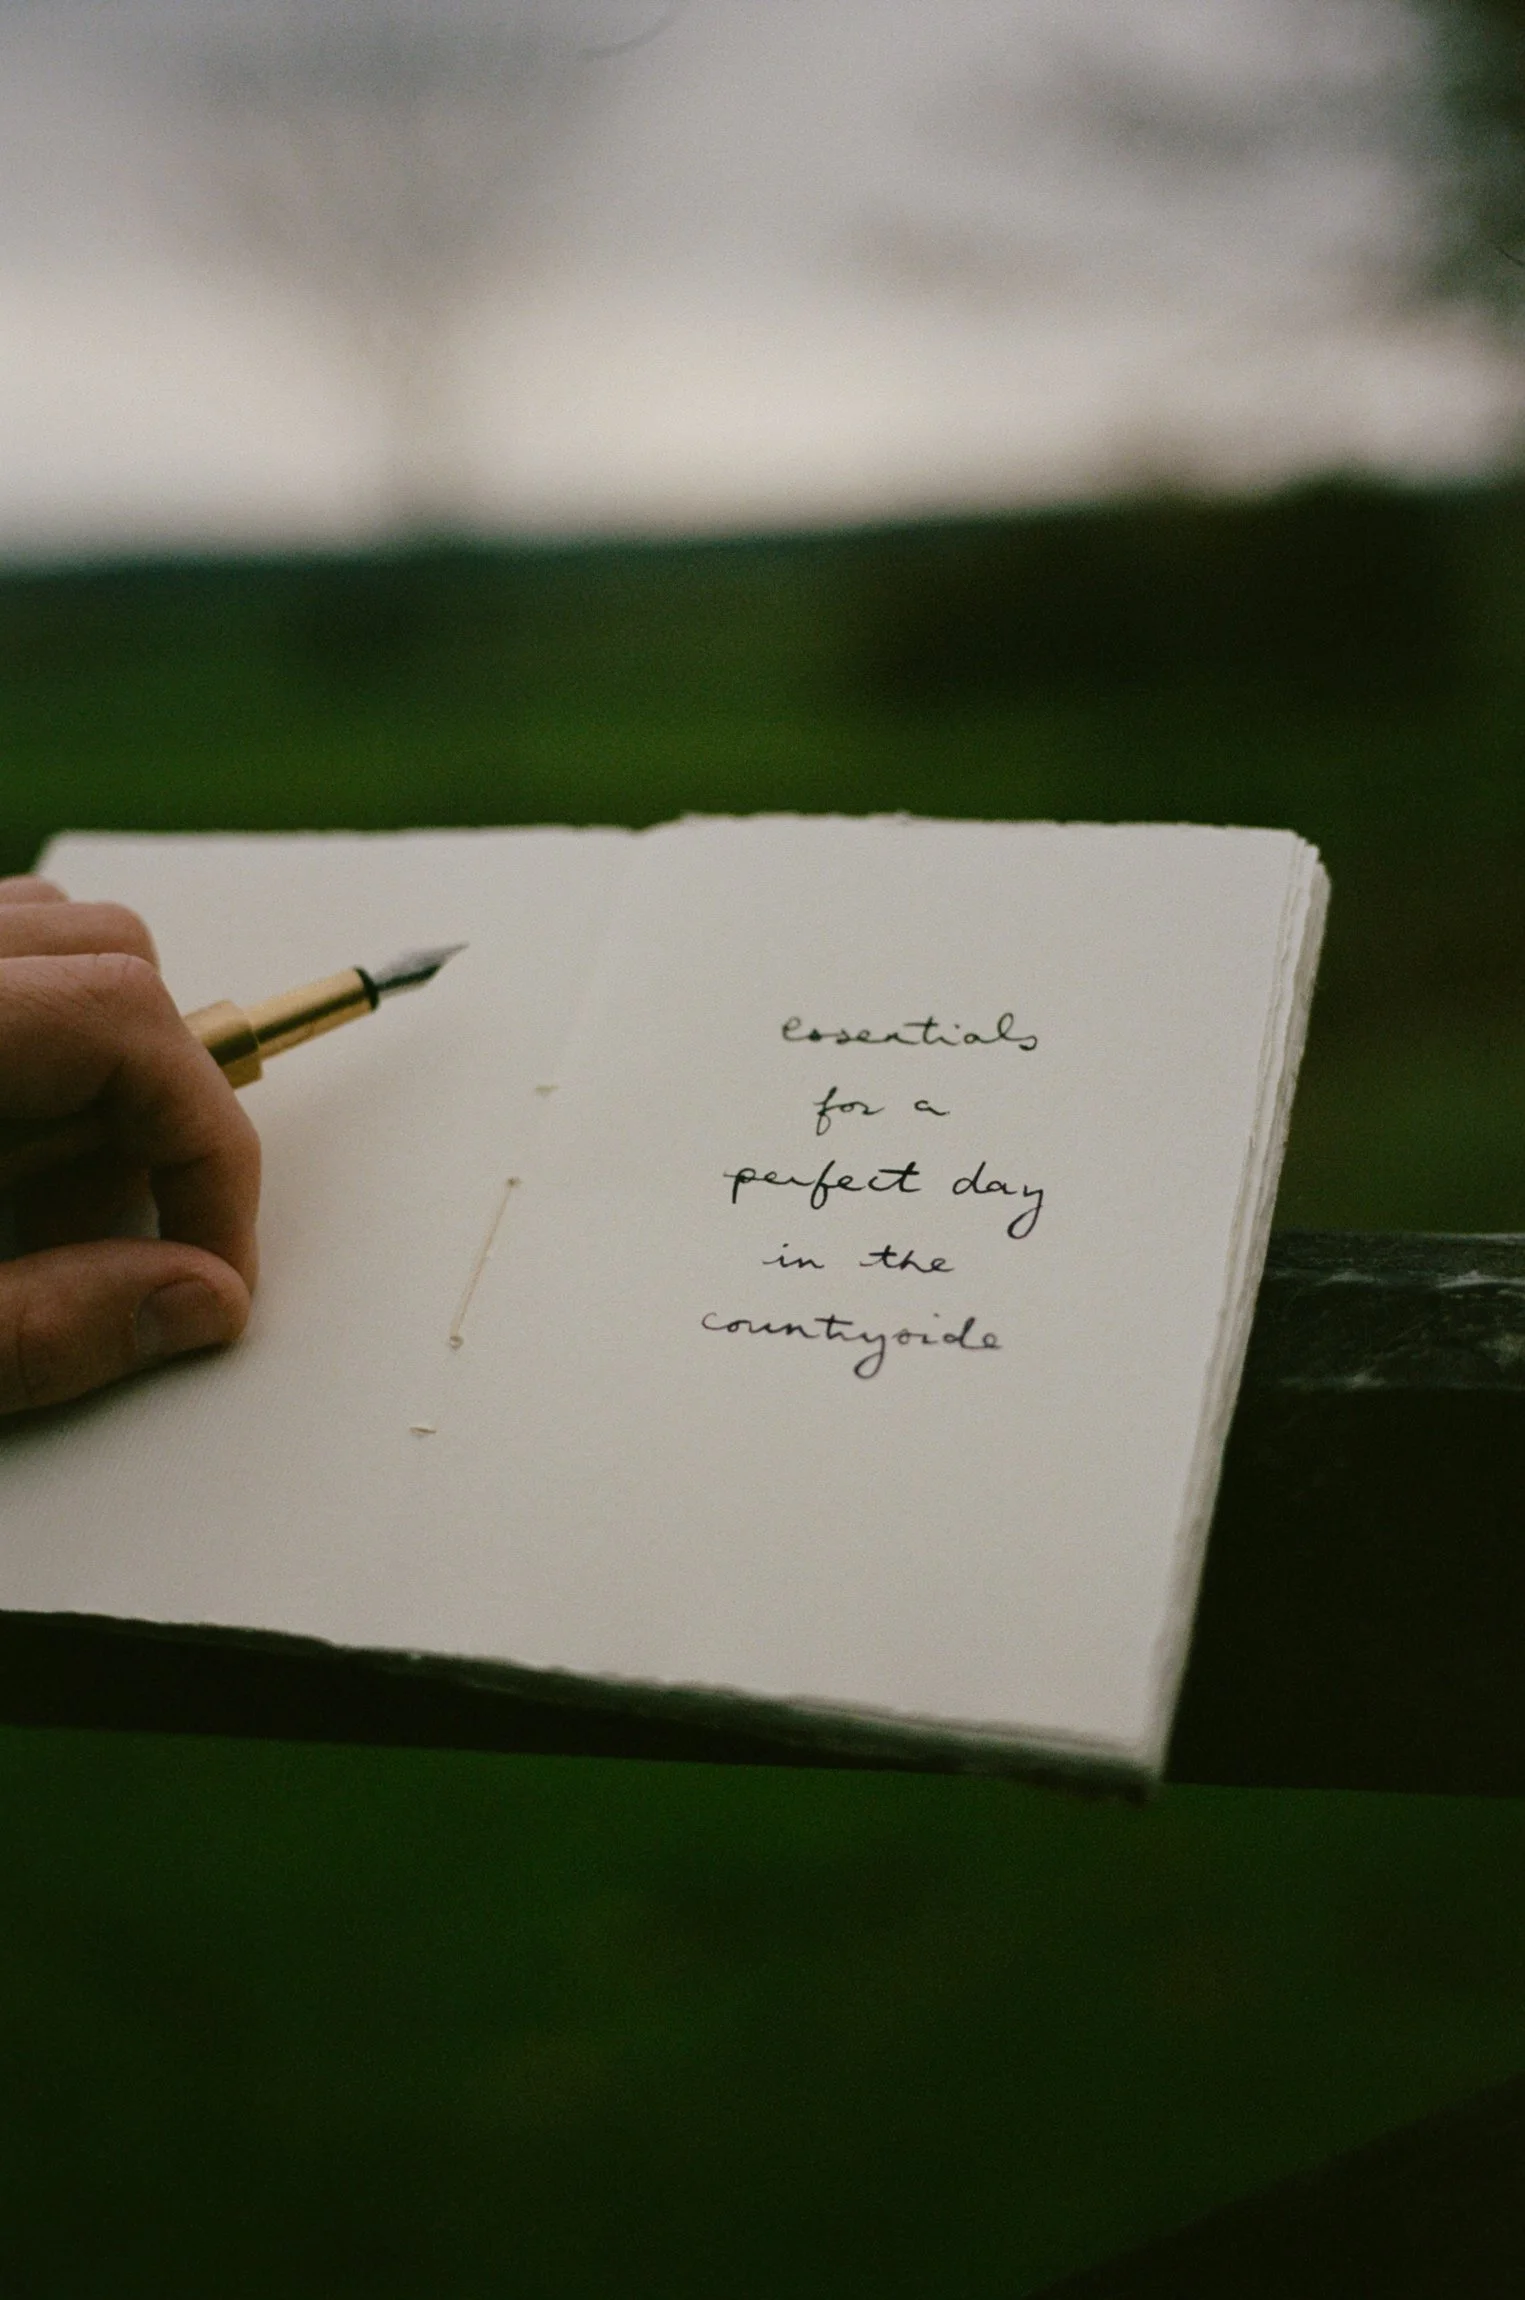 essentials
for a
perfect day
in the
countryside